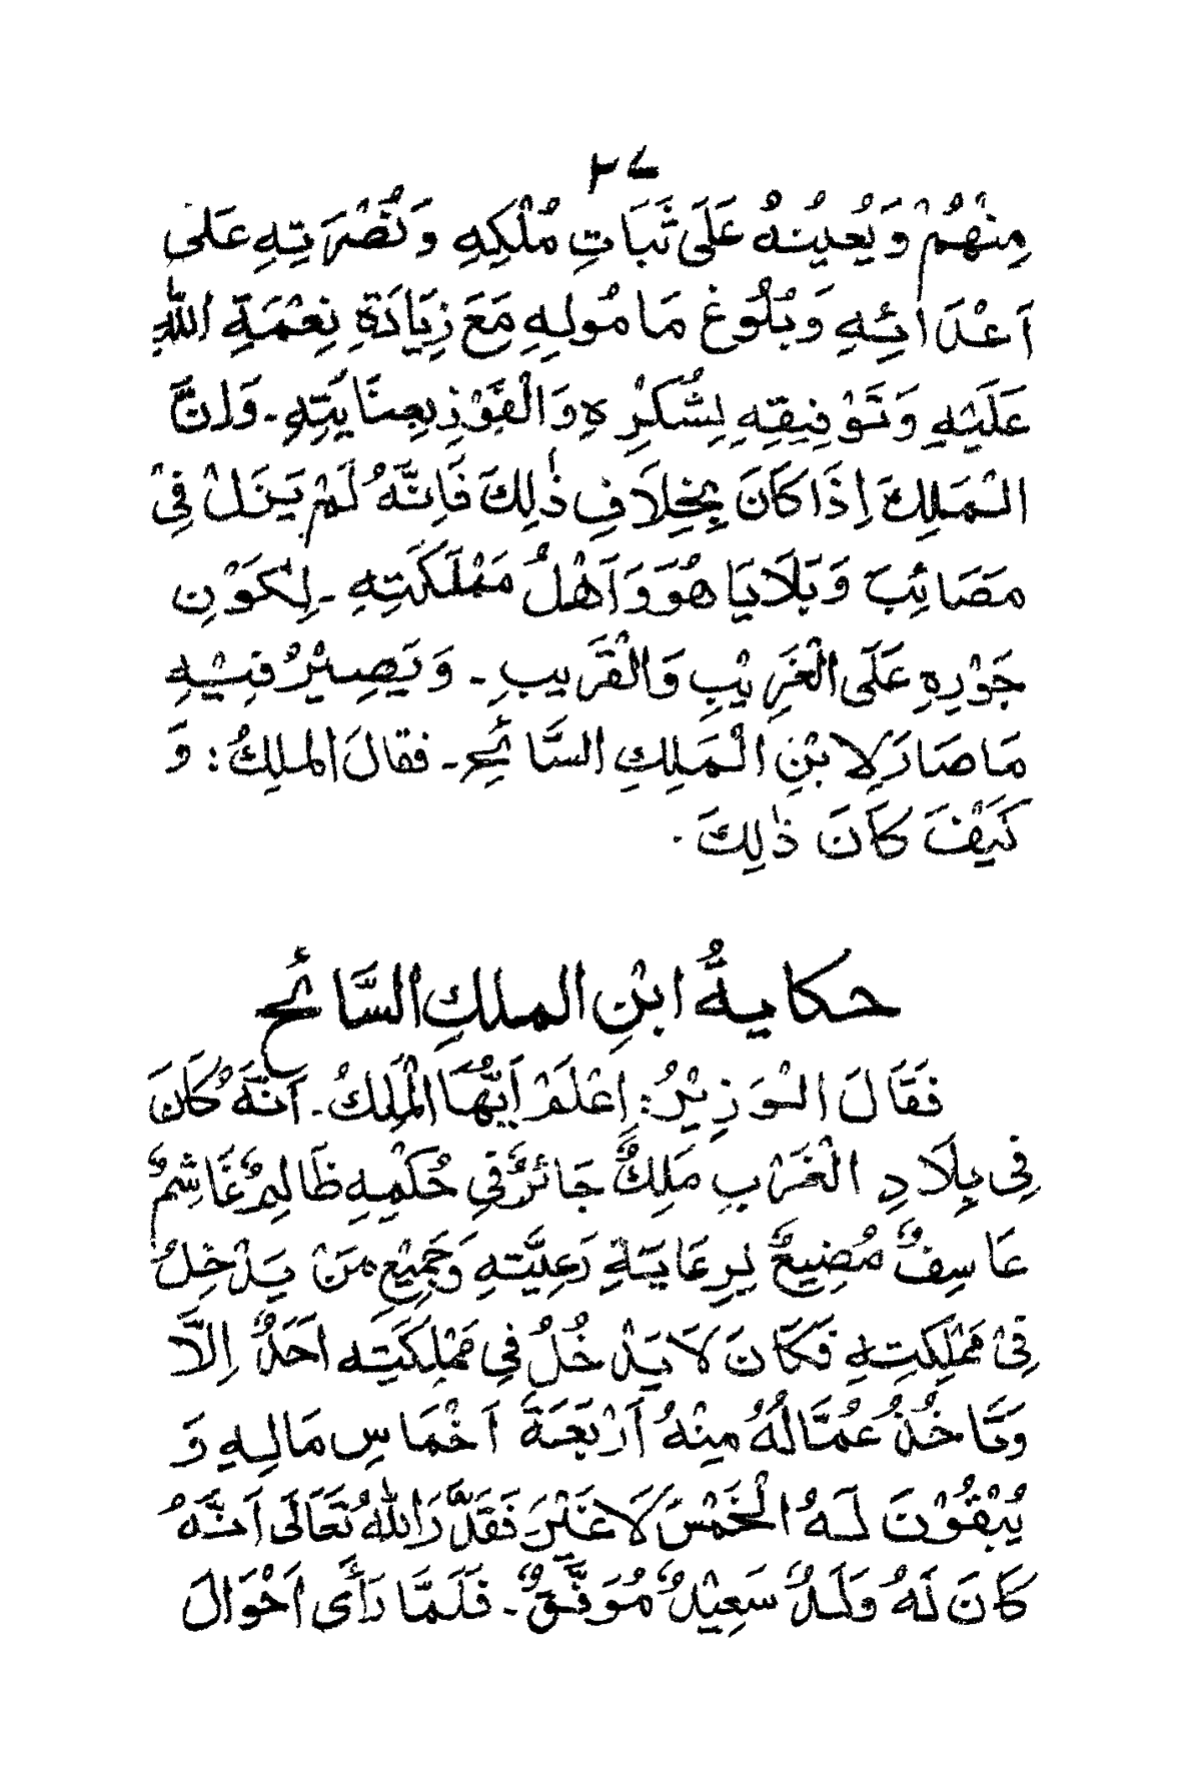 ٢٤
مِنْهُمْ وَيُعِينُهُ عَلَى ثَبَاتِ مُلْكِهِ وَنُصْرَتِهِ عَلَى
اَعْدَائِهِ وَبُلُوغِ مَامُولِهِ مَعَ زِيَادَةِ نِعْمَةِ اللهِ
عَلَيْهِ وَتَوْفِيقِهِ لِشُكْرِهِ وَالْفَوْزِ بِعِنَايَتِهِ ـ وَاِنَّ
الْمَلِكَ اِذَا كَانَ بِخِلَافِ ذٰلِكَ فَاِنَّهُ لَمْ يَزَلْ فِيْ
مَصَائِبَ وَبَلَايَا هُوَ وَاَهْلُ مَمْلَكَتِهِ ـ لِكَوْنِ
جَوْرِهِ عَلَى الْغَرِيْبِ وَالْقَرِيبِ ـ وَيَصِيْرُ فِيْهِ
مَاصَارَ لِابْنِ الْمَلِكِ السَّائِحِ ـ فقالَ الملِكُ : وَ
كَيْفَ كَانَ ذٰلِكَ ٠
حكايةُ ابْنِ الملكِ السَّائح
فَقَالَ الْوَزِيْرُ : اِعْلَمْ اَيُّهَا الْمَلِكُ ـ اَنَّهُ كَانَ
فِي بِلَادِ الْغَرْبِ مَلِكٌ جَائرٌ فِي حُكْمِهِ ظَالِمٌ غَاشِمٌ
عَاسِفٌ مُضِيعٌ لِرِعَايَةِ رَعِيَّتِهِ وَجَمِيْعِ مَنْ يَدْخِلُ
فِيْ مَمْلِكَتِهِ فَكَانَ لَا يَدْخُلُ فِي مَمْلِكَتِهِ اَحَدٌ اِلَّا
وَتَاخُذُ عُمَّالُهُ مِنْهُ اَرْبَعَةَ اَخْمَاسِ مَالِهِ وَ
يُبْقُوْنَ لَهُ الْخَمْسَ لَا غَيْرَ فَقَدَّرَ اللهُ تَعَالَى اَنَّهُ
كَانَ لَهُ وَلَدٌ سَعِيْدٌ مُوَفَّقٌ ـ فَلَمَّا رَأَى اَحْوَالَ